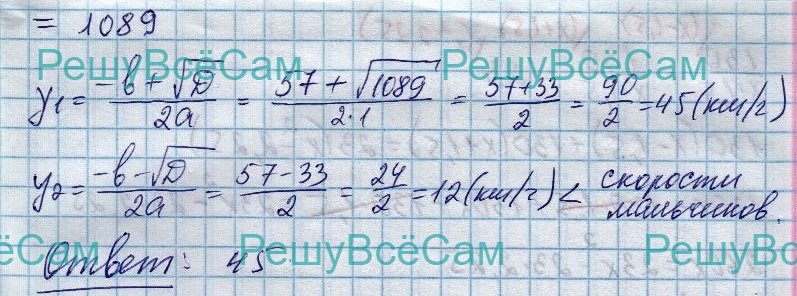 = 1089
РешуВсёСам РешуВсёСам
y₁ = (-b + √D)/2a = (57 + √1089)/2·1 = (57+33)/2 = 90/2 = 45 (км/г)
y₂ = (-b - √D)/2a = (57 - 33)/2 = 24/2 = 12 (км/г) < скорости
мальчиков.
ёСам РешуВсёСам РешуВс
Ответ: 45